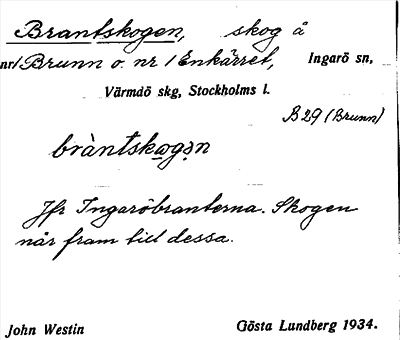 Brantskogen, skog å
nr 1 Brunn o. nr 1 Enkärret, Ingarö sn,
Värmdö skg, Stockholms l.
B 29 (Brunn)
bràntskogən
Jfr Ingaröbranterna. Skogen
når fram till dessa.
John Westin
Gösta Lundberg 1934.